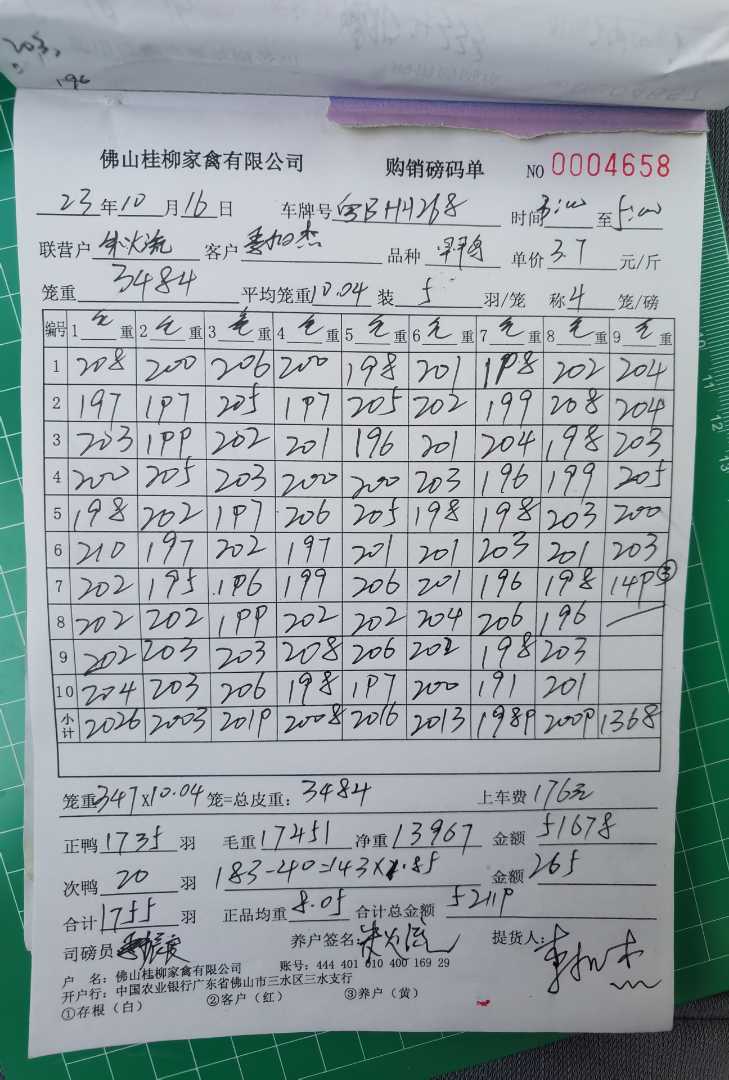 203
196
佛山桂柳家禽有限公司 购销磅码单 NO 0004658
23年10月16日 车牌号 粤BH4268 时间3:00至5:00
联营户 朱火流 客户 杰 品种 单价3.7元/斤
笼重 3484 平均笼重10.04 装 5 羽/笼 称4笼/磅
编号 1 毛重 2 毛重 3 毛重 4 毛重 5 毛重 6 毛重 7 毛重 8 毛重 9 毛重
1 208 200 206 200 198 201 198 202 204
2 197 197 205 197 205 202 199 208 204
3 203 199 202 201 196 201 204 198 203
4 200 205 203 200 200 203 196 199 205
5 198 202 197 206 205 198 198 203 200
6 210 197 202 197 201 201 203 201 203
7 202 195 196 199 206 201 196 198 149③
8 202 202 199 202 202 204 206 196
9 202 203 203 208 206 202 198 203
10 204 203 206 198 197 200 191 201
小计 2026 2003 2019 2008 2016 2013 1989 2009 1368
笼重347×10.04笼=总皮重：3484 上车费 176元
正鸭1735羽 毛重17451 净重13967 金额51678
次鸭 20 羽 183-40=143×1.85 金额265
合计1755羽 正品均重8.05 合计总金额 52119
司磅员 养户签名: 朱火流 提货人:
户 名: 佛山桂柳家禽有限公司 账号: 444 401 010 400 169 29
开户行: 中国农业银行广东省佛山市三水区三水支行
①存根（白） ②客户（红） ③养户（黄）